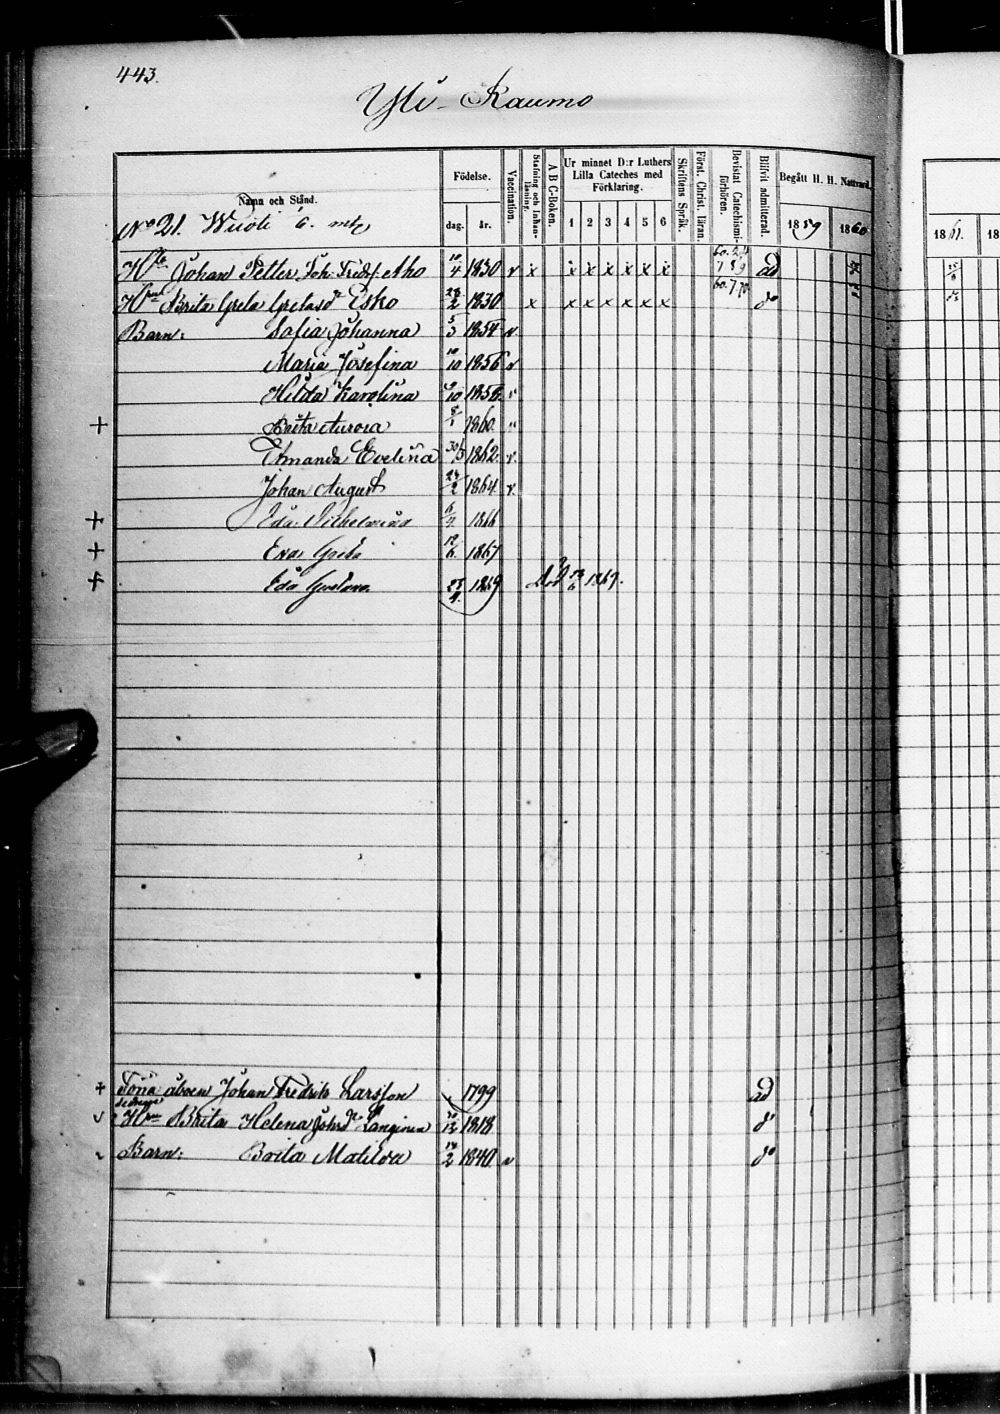 443.
Yli-Raumo
Namn och Stånd.
Födelse.
dag. år.
Vaccination.
Stafning och Innanläsning.
A B C-Boken.
Ur minnet D:r Luthers Lilla Cateches med Förklaring.
1 2 3 4 5 6
Skriftens Språk.
Först. Christ. läran.
Bevistat Catechismiförhören.
Blifvit admitterad.
Begått H. H. Nattvard.
1859 1860
1861. 18
No 21. Wuoti
Johan Petter Joh: Fredss: Aho 10/4 1830 v x x x x x x x ad
Brita Greta Gretasdr Esko 1830 x x x x x x x do
Barn: Sofia Johanna 5/3 1854 v
Maria Josefina 10/10 1856 v
Hilda Karolina 9/10 1858 v
+ Brita Aurora 1860
Amanda Evelina 1862 v
Johan August 24/2 1864 v
+ Eda Vilhelmina 6/4 1866
+ Eva Greta 12/6 1867
+ Eda Gustava 1869 död 1869.
+ Förra åboen Johan Fredrik Larsson 1799 ad
Brita Helena Johsdr Langinen 1818 do
Barn: Brita Matilda 1840 v do